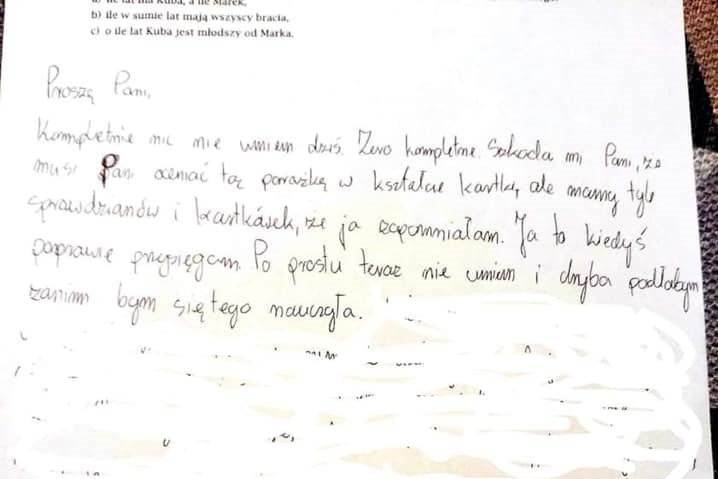 a) ile lat ma Kuba, a ile Marek,
b) ile w sumie lat mają wszyscy bracia,
c) o ile lat Kuba jest młodszy od Marka.
Proszę Pani,
Kompletnie nic nie umiem dziś. Zero kompletne. Szkoda mi Pani, że
musi Pani oceniać tą porażkę w kształcie kartki, ale mamy tyle
sprawdzianów i kartkásek, że ja zapomniałam. Ja to kiedyś
poprawię przysięgam. Po prostu teraz nie umiem i chyba podłabym
zanim bym się tego nauczyła.